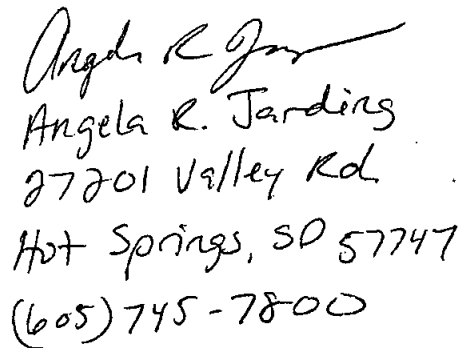 Angela R Jar
Angela R. Jarding
27201 Valley Rd.
Hot Springs, SD 57747
(605) 745-7800